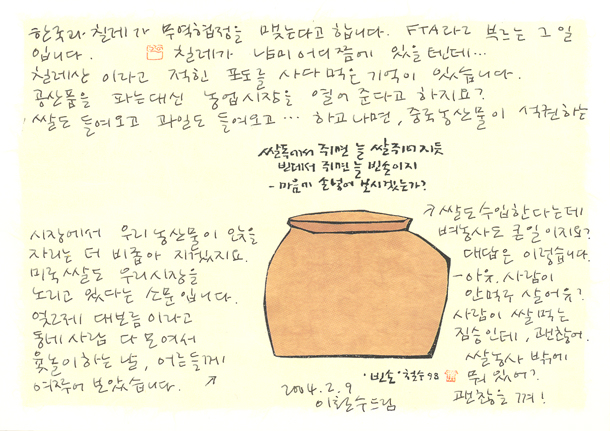 한국과 칠레가 무역협정을 맺는다고 합니다. FTA라고 부르는 그 일
입니다. 칠레가 남미 어디쯤에 있을텐데…
칠레산 이라고 적힌 포도를 사다 먹은 기억이 있습니다.
공산품을 파는 대신 농업시장을 열어 준다고 하지요?
쌀도 들여오고 과일도 들여오고… 하고나면, 중국농산물이 석권하는
시장에서 우리 농산물이 앉을
자리는 더 비좁아 지겠지요.
미국쌀도 우리시장을
노리고 있다는 소문입니다.
엊그제 대보름이라고
동네사람 다 모여서
윷놀이하는 날, 어른들께
여쭈어 보았습니다. ↗
↗쌀도 수입한다는데
벼농사도 큰일이지요?
대답은 이렇습니다.
-아유, 사람이
안먹구 살어유?
사람이 쌀 먹는
짐승인데, 괜찮어.
쌀농사 밖에
뭐 있어?
괜찮을 껴!
쌀독에서 쥐면 늘 쌀쥐어지듯
빈데서 쥐면 늘 빈손이지
-마음에 손넣어 보시겠는가?
'빈손' 철수 98
2004. 2. 9
이철수드림